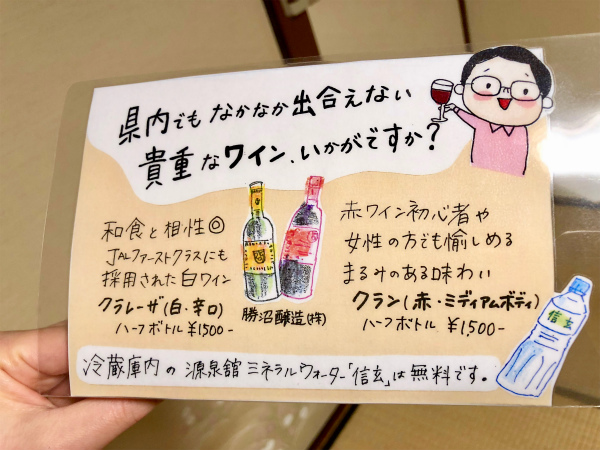 県内でもなかなか出合えない
貴重なワイン、いかがですか?
和食と相性◎
JALファーストクラスにも
採用された白ワイン
クラレーザ(白・辛口)
ハーフボトル ¥1500-
勝沼醸造(株)
赤ワイン初心者や
女性の方でも愉しめる
まるみのある味わい
クラン(赤・ミディアムボディ)
ハーフボトル ¥1500-
信玄
冷蔵庫内の源泉舘ミネラルウォーター「信玄」は無料です。